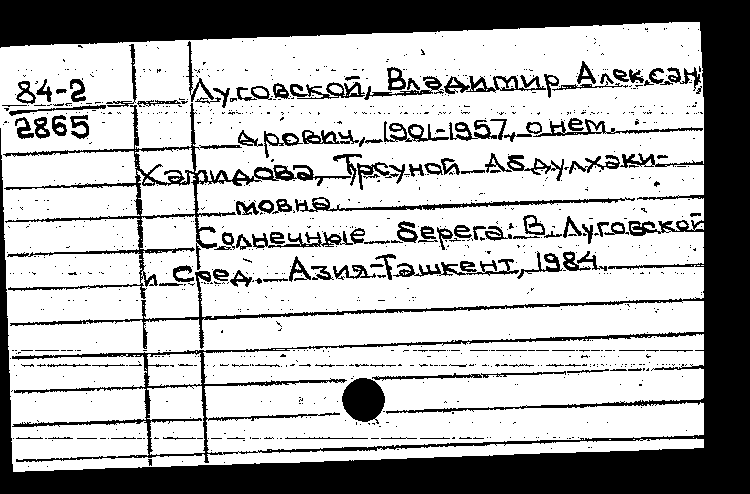 84-2
2865
Луговской, Владимир Алексан
дрович, 1901-1957, о нем.
Хамидова, Трсуной Абдулхаки-
мовна.
Солнечные берега: В. Луговской
и Сред. Азия-Ташкент, 1984.